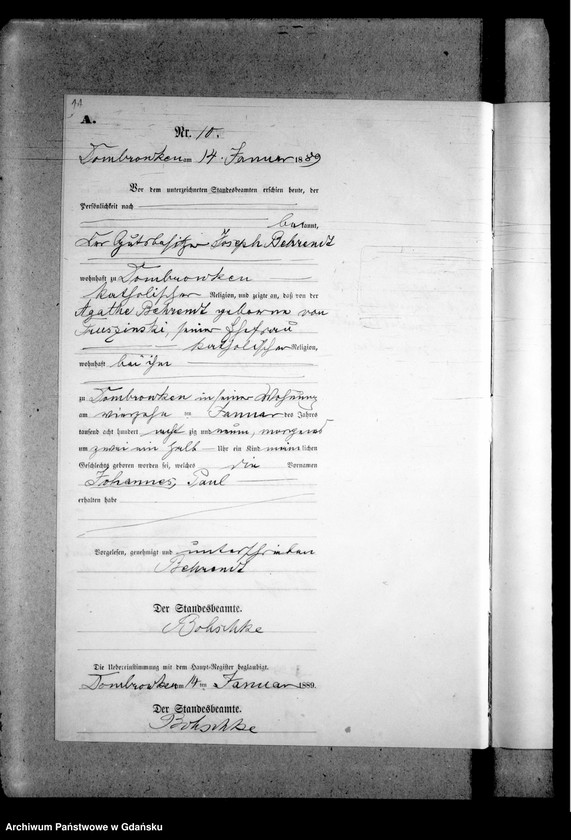 11
A.
Nr. 10.
Dombrowken am 14. Januar 1889
Vor dem unterzeichneten Standesbeamten erschien heute, der
Persönlichkeit nach
bekannt,
der Gutsbesitzer Joseph Behrendt
wohnhaft zu Dombrowken
katholischer Religion, und zeigte an, daß von der
Agathe Behrendt geborne von
seiner Ehefrau
katholischer Religion,
wohnhaft bei ihm
zu Dombrowken in seiner Wohnung
am vierzehn ten Januar des Jahres
tausend acht hundert acht zig und neun, morgens
um zwei ein halb Uhr ein Kind männlichen
Geschlechts geboren worden sei, welches die Vornamen
Johannes, Paul
erhalten habe
Vorgelesen, genehmigt und unterschrieben
Behrendt
Der Standesbeamte.
Bohschke
Die Uebereinstimmung mit dem Haupt-Register beglaubigt.
Dombrowken am 14 ten Januar 1889.
Der Standesbeamte.
Bohschke
Archiwum Państwowe w Gdańsku